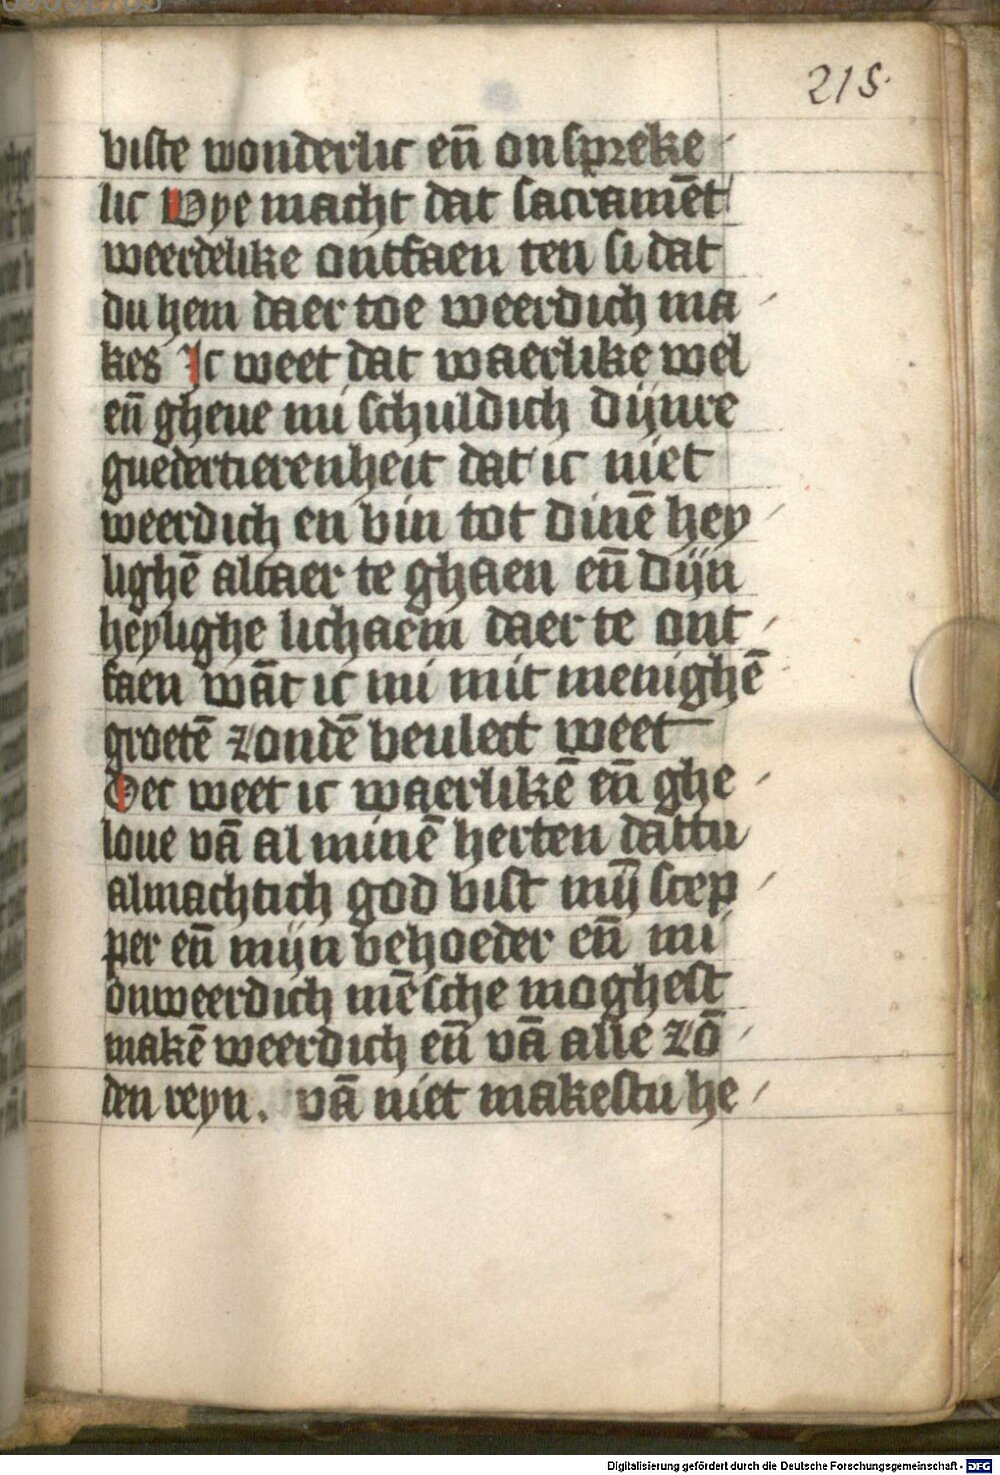 215.
biste wonderlic en̄ onspreke
lic Wye macht dat sacramēt
weerdelike ontfaen ten si dat
du hem daer toe weerdich ma
kes Ic weet dat waerlike wel
en̄ gheue mi schuldich dijnre
guedertierenheit dat ic niet
weerdich en bin tot dinē hey
lighē altaer te ghaen en̄ dijn
heylighe lichaem daer te ont
faen wāt ic mi mit menighē
groetē zondē beulect weet
Det weet ic waerlikē en̄ ghe
loue vā al minē herten dattu
almachtich god bist mij̄ scep
per en̄ mijn behoeder en̄ mi
onweerdich mēsche moghest
makē weerdich en̄ vā alle zō
den reyn. vā niet makestu he
Digitalisierung gefördert durch die Deutsche Forschungsgemeinschaft - DFG